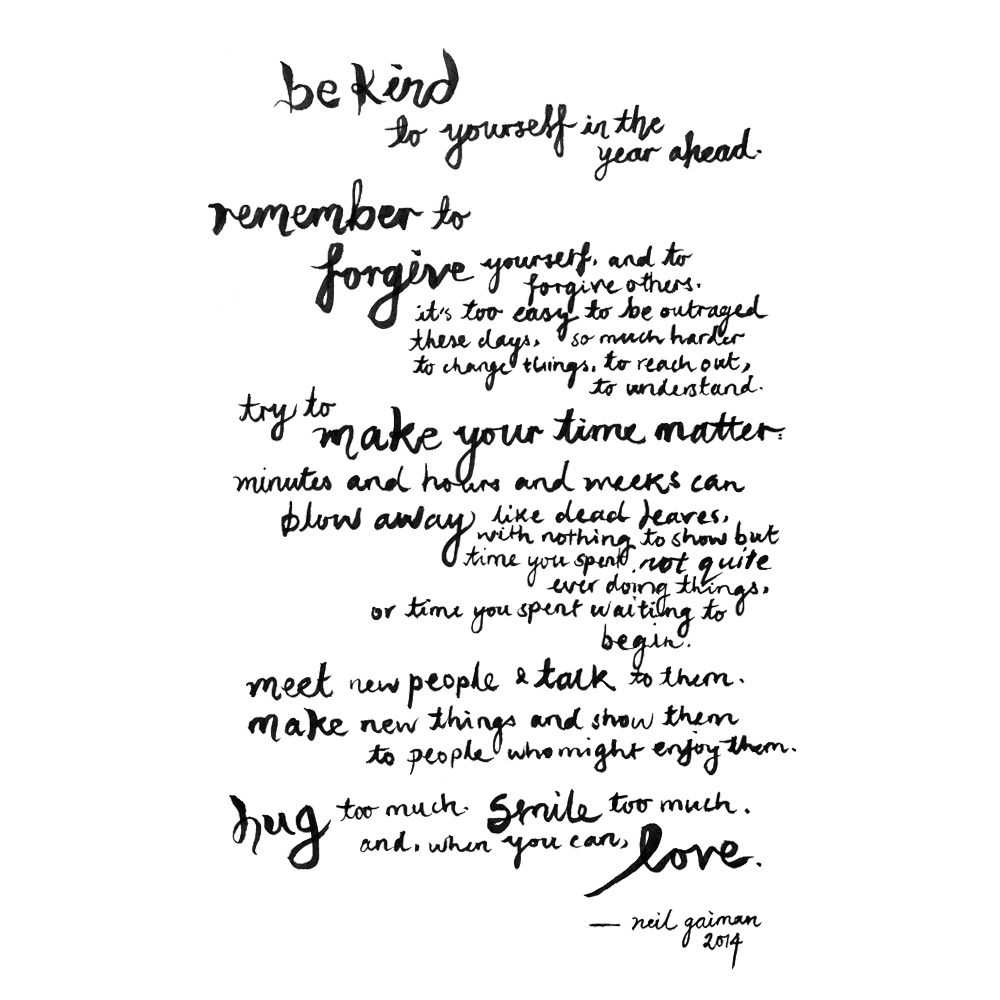 be kind
to yourself in the
year ahead.
remember to
forgive yourself, and to
forgive others.
it's too easy to be outraged
these days, so much harder
to change things, to reach out,
to understand.
try to
make your time matter:
minutes and hours and weeks can
blow away like dead leaves,
with nothing to show but
time you spent not quite
ever doing things,
or time you spent waiting to
begin.
meet new people & talk to them.
make new things and show them
to people who might enjoy them.
hug too much. smile too much.
and, when you can, love.
— neil gaiman
2014